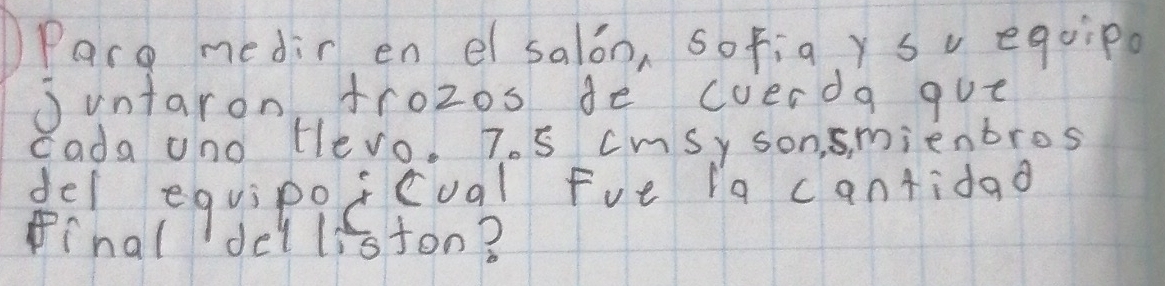 Para medir en el salón, sofia y su equipo
juntaron trozos de cuerda que
cada uno llevo. 7.5 cms y son 5, mienbros
del equipo ¿Cual fue la cantidad
final del liston?